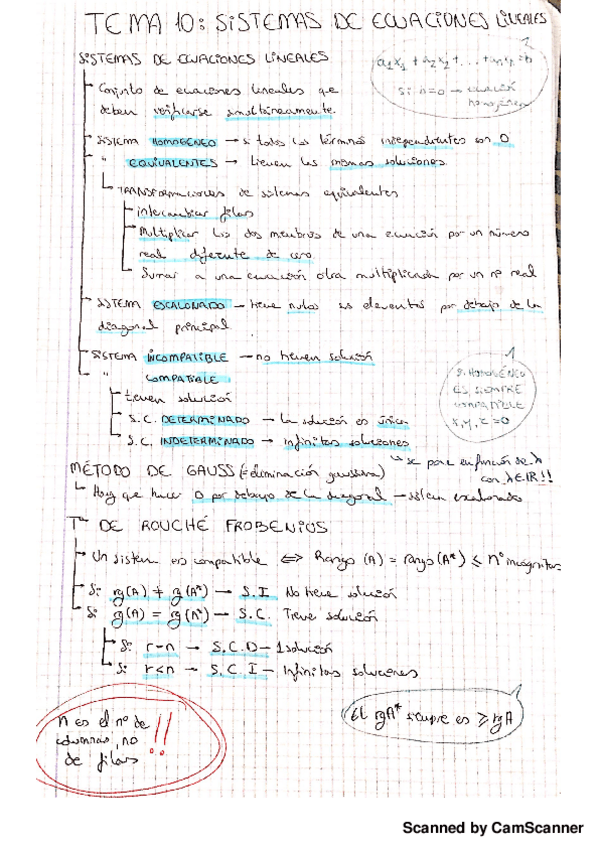 TEMA 10: SISTEMAS DE ECUACIONES LINEALES
SISTEMAS DE ECUACIONES LINEALES
a₁x₁ + a₂x₂ + ... + aₙxₙ = b
Si b=0 → ecuación
homogénea
Conjunto de ecuaciones lineales que
deben verificarse simultáneamente.
SISTEMA HOMOGÉNEO → si todos los términos independientes son 0
" EQUIVALENTES → tienen las mismas soluciones
TRANSFORMACIONES de sistemas equivalentes
intercambiar filas
Multiplicar los dos miembros de una ecuación por un número
real diferente de cero
Sumar a una ecuación otra multiplicada por un nº real
SISTEMA ESCALONADO → tiene nulos sus elementos por debajo de la
diagonal principal
SISTEMA INCOMPATIBLE → no tienen solución
" COMPATIBLE
Si HOMOGÉNEO
ES SIEMPRE
COMPATIBLE
x,y,z=0
tienen solución
S.C. DETERMINADO → La solución es única
S.C. INDETERMINADO → infinitas soluciones
↳ se pone en función de λ
con λ∈ℝ!!
MÉTODO DE GAUSS (=eliminación gaussiana)
Hay que hacer 0 por debajo de la diagonal → sistem escalonado
Tª DE ROUCHÉ FROBENIUS
Un sistem es compatible ⟺ Rango (A) = rango(A*) ≤ nº incógnitas
Si rg(A) ≠ rg(A*) → S.I No tiene solución
Si rg(A) = rg(A*) → S.C. Tiene solución
Si r=n → S.C.D → 1 solución
Si r<n → S.C.I → Infinitas soluciones
n es el nº de
columnas, no
de filas !!
El rgA* siempre es ≥ rgA
Scanned by CamScanner